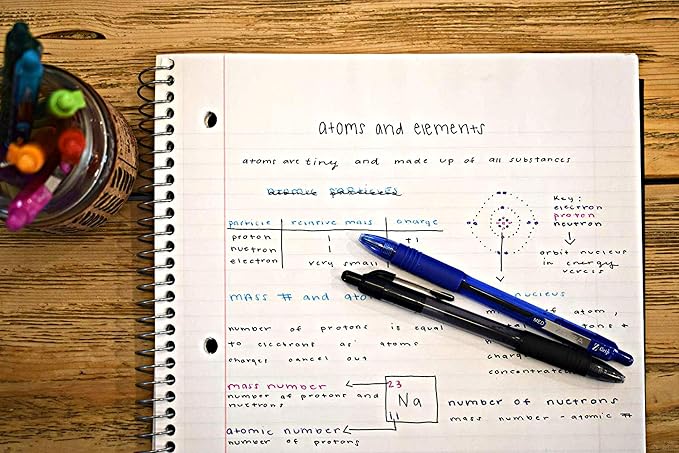 atoms and elements
atoms are tiny and made up of all substances
atomic particles
particle relative mass charge
proton 1 +1
nuetron 1
electron very small
Key:
electron
proton
neutron
orbit nucleus
in energy
MASS # and
nucleus
atom,
number of protons is equal
to electrons as atoms
charges cancel out
concentrated
mass number
number of protons and
nuetrons
23
Na
11
atomic number
number of protons
number of nuetrons
mass number - atomic #
MED
Z Grip